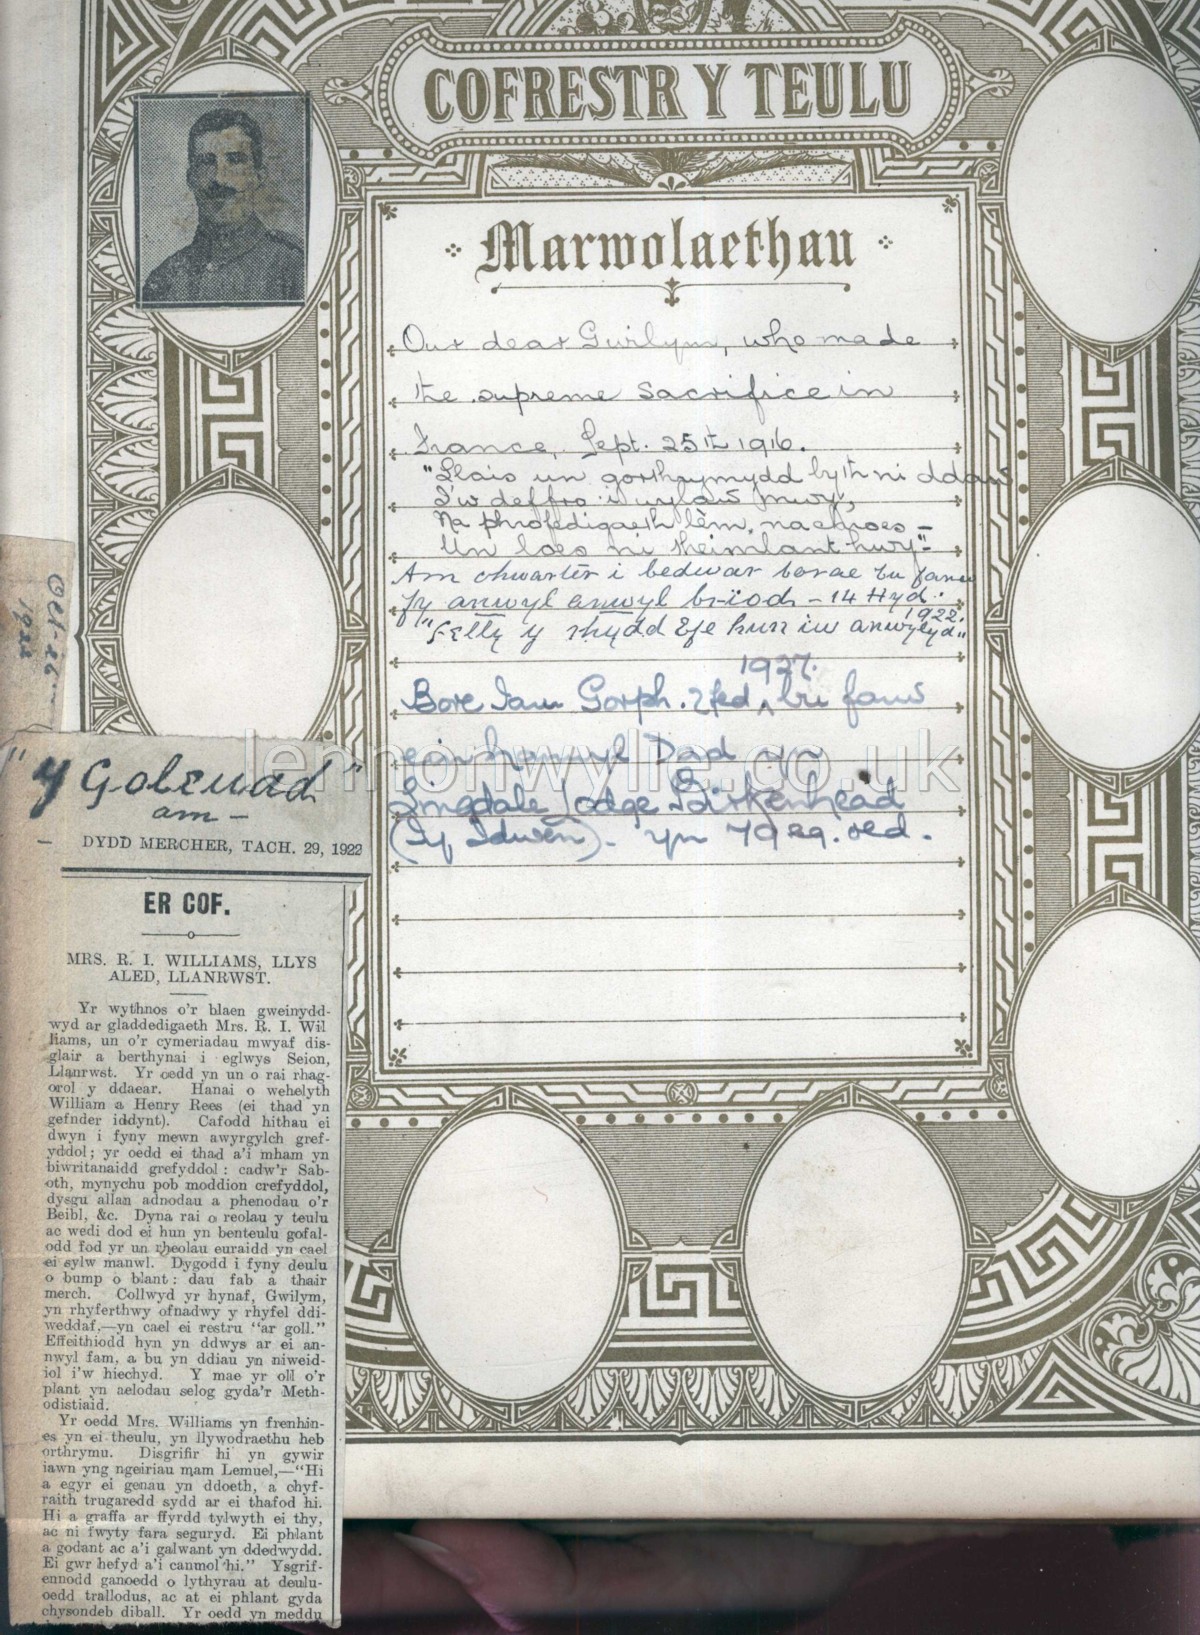 COFRESTR Y TEULU
Marwolaethau
Our dear Gwilym, who made
the supreme sacrifice in
France, Sept. 25th 1916.
"Llais un gorthrymydd byth ni ddaw
I'w deffro i wylaw mwy,
Na phrofedigaeth lèm, na chroes –
Un loes ni theimlant hwy"
Am chwarter i bedwar borae bu farw
fy anwyl anwyl briod – 14 Hyd.
1922.
"Felly y rhydd Efe hun iw anwylyd"
1927.
Bore Iau Gorph. bu farw
ein hannwyl Dad yn
Lingdale Lodge Birkenhead
(Ty Idwen). yn 79 eg. oed.
Oct. 26
1922
"Y Goleuad"
am –
DYDD MERCHER, TACH. 29, 1922
ER COF.
MRS. R. I. WILLIAMS, LLYS
ALED, LLANRWST.
Yr wythnos o'r blaen gweinydd-
wyd ar gladdedigaeth Mrs. R. I. Wil
liams, un o'r cymeriadau mwyaf dis-
glair a berthynai i eglwys Seion,
Llanrwst. Yr oedd yn un o rai rhag-
orol y ddaear. Hanai o wehelyth
William a Henry Rees (ei thad yn
gefnder iddynt). Cafodd hithau ei
dwyn i fyny mewn awyrgylch gref-
yddol; yr oedd ei thad a'i mham yn
biwritanaidd grefyddol: cadw'r Sab-
oth, mynychu pob moddion crefyddol,
dysgu allan adnodau a phenodau o'r
Beibl, &c. Dyna rai o reolau y teulu
ac wedi dod ei hun yn benteulu gofal-
odd fod yr un rheolau euraidd yn cael
ei sylw manwl. Dygodd i fyny deulu
o bump o blant: dau fab a thair
merch. Collwyd yr hynaf, Gwilym,
yn rhyferthwy ofnadwy y rhyfel ddi-
weddaf,—yn cael ei restru "ar goll."
Effeithiodd hyn yn ddwys ar ei an-
nwyl fam, a bu yn ddiau yn niweid-
iol i'w hiechyd. Y mae yr oll o'r
plant yn aelodau selog gyda'r Meth-
odistiaid.
Yr oedd Mrs. Williams yn frenhin-
es yn ei theulu, yn llywodraethu heb
orthrymu. Disgrifir hi yn gywir
iawn yng ngeiriau mam Lemuel,—"Hi
a egyr ei genau yn ddoeth, a chyf-
raith trugaredd sydd ar ei thafod hi.
Hi a graffa ar ffyrdd tylwyth ei thy,
ac ni fwyty fara seguryd. Ei phlant
a godant ac a'i galwant yn ddedwydd.
Ei gwr hefyd a'i canmol hi." Ysgrif-
ennodd ganoedd o lythyrau at deulu-
oedd trallodus, ac at ei phlant gyda
chysondeb diball. Yr oedd yn meddu
lennonwylie.co.uk